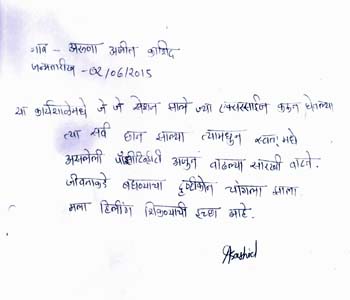 नाव - अरुणा अजीत काशिद
जन्मतारीख - 02/06/2015
या कार्यशाळेमधे जे जे सेशन झाले ज्या एक्सरसाईज करून घेतल्या
त्या सर्व छान झाल्या त्यामधुन स्वतः मधे
असलेली पॉझीटिव्हिटी अजुन वाढल्या सारखी वाटते.
जीवनाकडे बघण्याचा दृष्टीकोन चांगला झाला.
मला हिलींग शिकण्याची इच्छा आहे.
Akashid